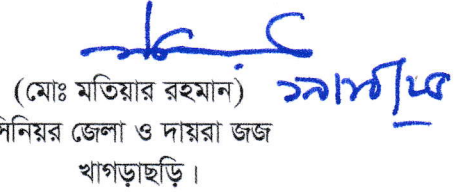 (মোঃ মতিয়ার রহমান)
সিনিয়র জেলা ও দায়রা জজ
খাগড়াছড়ি।